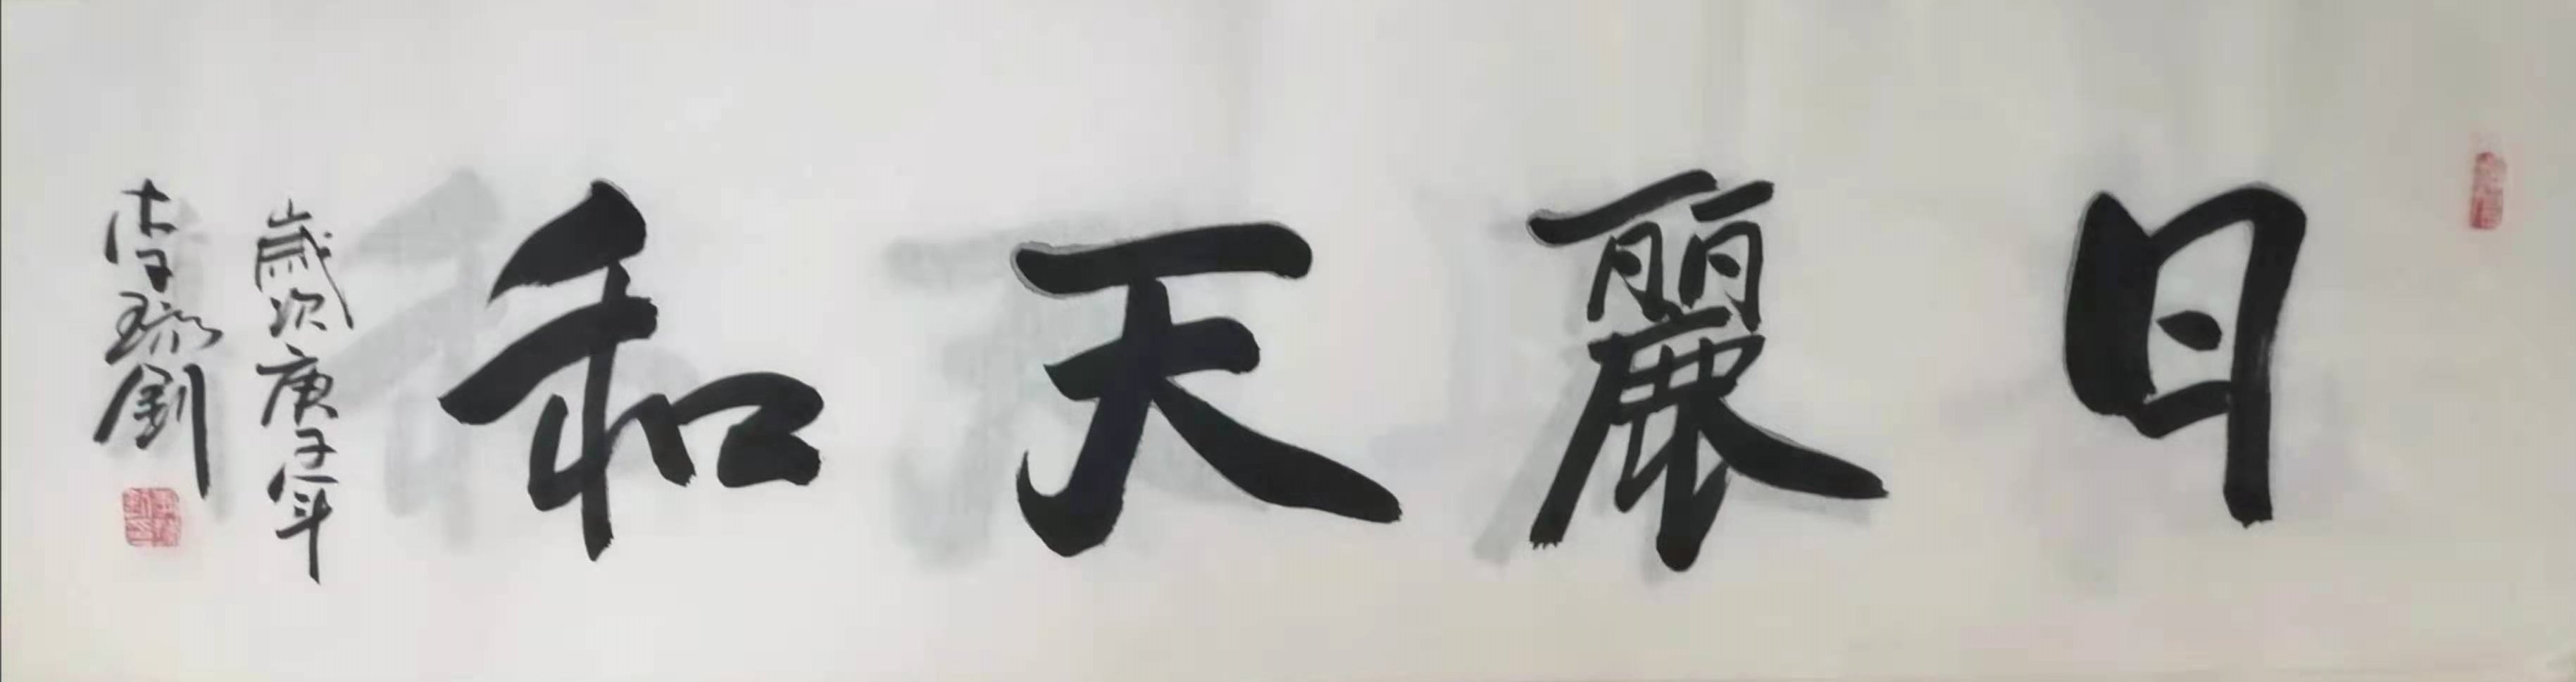 日麗天和
歲次庚子年
李瑞釗